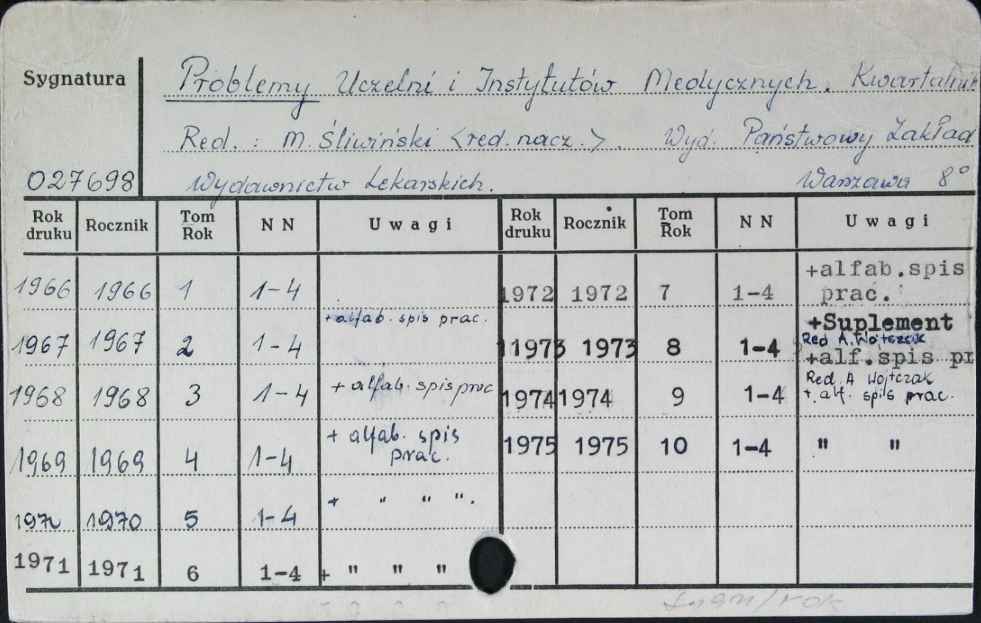 Sygnatura
Problemy Uczelni i Instytutów Medycznych. Kwartalnik
Red. : M. Śliwiński <red. nacz.>. Wyd: Państwowy Zakład
027698 Wydawnictw Lekarskich. Warszawa 8°
Rok druku Rocznik Tom Rok N N Uwagi Rok druku Rocznik Tom Rok N N Uwagi
1966 1966 1 1-4
1972 1972 7 1-4 +alfab.spis prac.
1967 1967 2 1-4 +alfab. spis prac.
11973 1973 8 1-4 +Suplement
Red A. Wojtczak
+alf.spis pr
1968 1968 3 1-4 + alfab. spis prac
1974 1974 9 1-4 Red. A Wojtczak
+ alf. spis prac.
1969 1969 4 1-4 + alfab. spis prac.
1975 1975 10 1-4 " "
1970 1970 5 1-4 + " " ".
1971 1971 6 1-4 + " " "